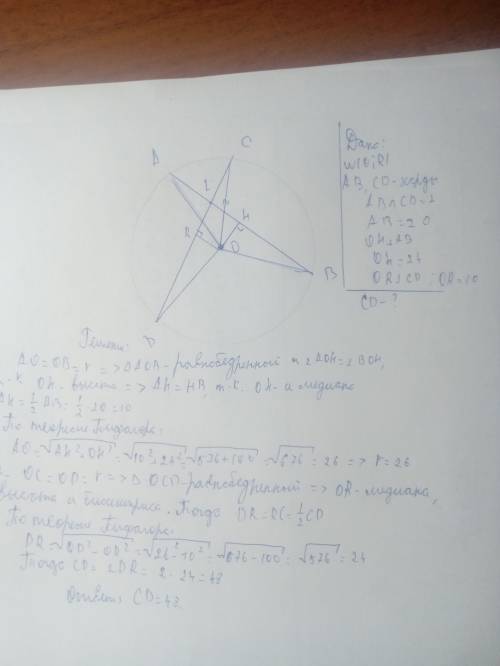 Дано:
W(O; R)
AB, CD - хорды
AB∩CD=I
AB=20
OH⊥AB
OH=24
OR⊥CD; OR=10
CD-?
A
C
I
H
R
O
B
D
Решение:
AO=OB=r => ΔAOB-равнобедренный и ∠AOH=∠BOH,
т.к. OH-высота => AH=HB, т.к. OH-и медиана
AH=½AB=½·20=10
По теореме Пифагора:
AO=√AH²+OH²=√10²+24²=√576+100=√676=26 => r=26
OC=OD=r => Δ OCD-равнобедренный => OR-медиана,
высота и биссектриса. Тогда DR=RC=½CD
По теореме Пифагора:
DR=√OD²-OR²=√26²-10²=√676-100=√576=24
Тогда CD=2DR=2·24=48
Ответ: CD=48